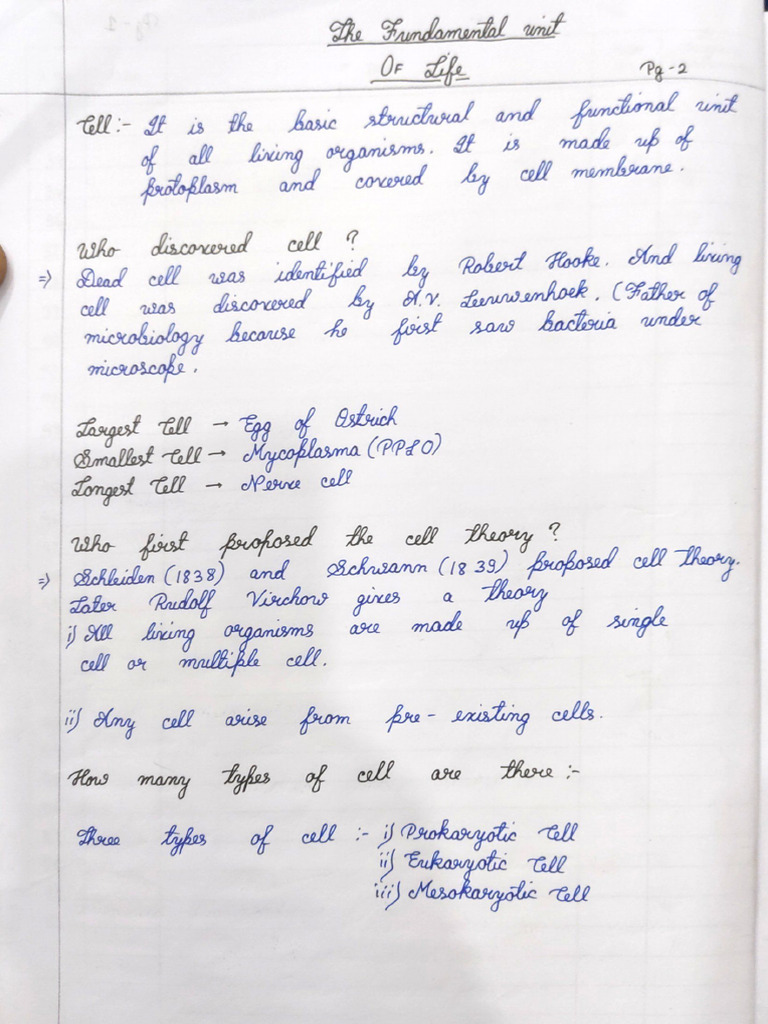 The Fundamental unit
Of Life
Pg-2
Cell:- It is the basic structural and functional unit
of all living organisms. It is made up of
protoplasm and covered by cell membrane.
Who discovered cell ?
⇒ Dead cell was identified by Robert Hooke. And living
cell was discovered by A.V. Leeuwenhoek. (Father of
microbiology because he first saw bacteria under
microscope.
Largest Cell → Egg of Ostrich
Smallest Cell → Mycoplasma (PPLO)
Longest Cell → Nerve cell
Who first proposed the cell theory ?
⇒ Schleiden (1838) and Schwann (1839) proposed cell theory.
Later Rudolf Virchow gives a theory
i) All living organisms are made up of single
cell or multiple cell.
ii) Any cell arise from pre-existing cells.
How many types of cell are there :-
Three types of cell :- i) Prokaryotic Cell
ii) Eukaryotic Cell
iii) Mesokaryotic Cell